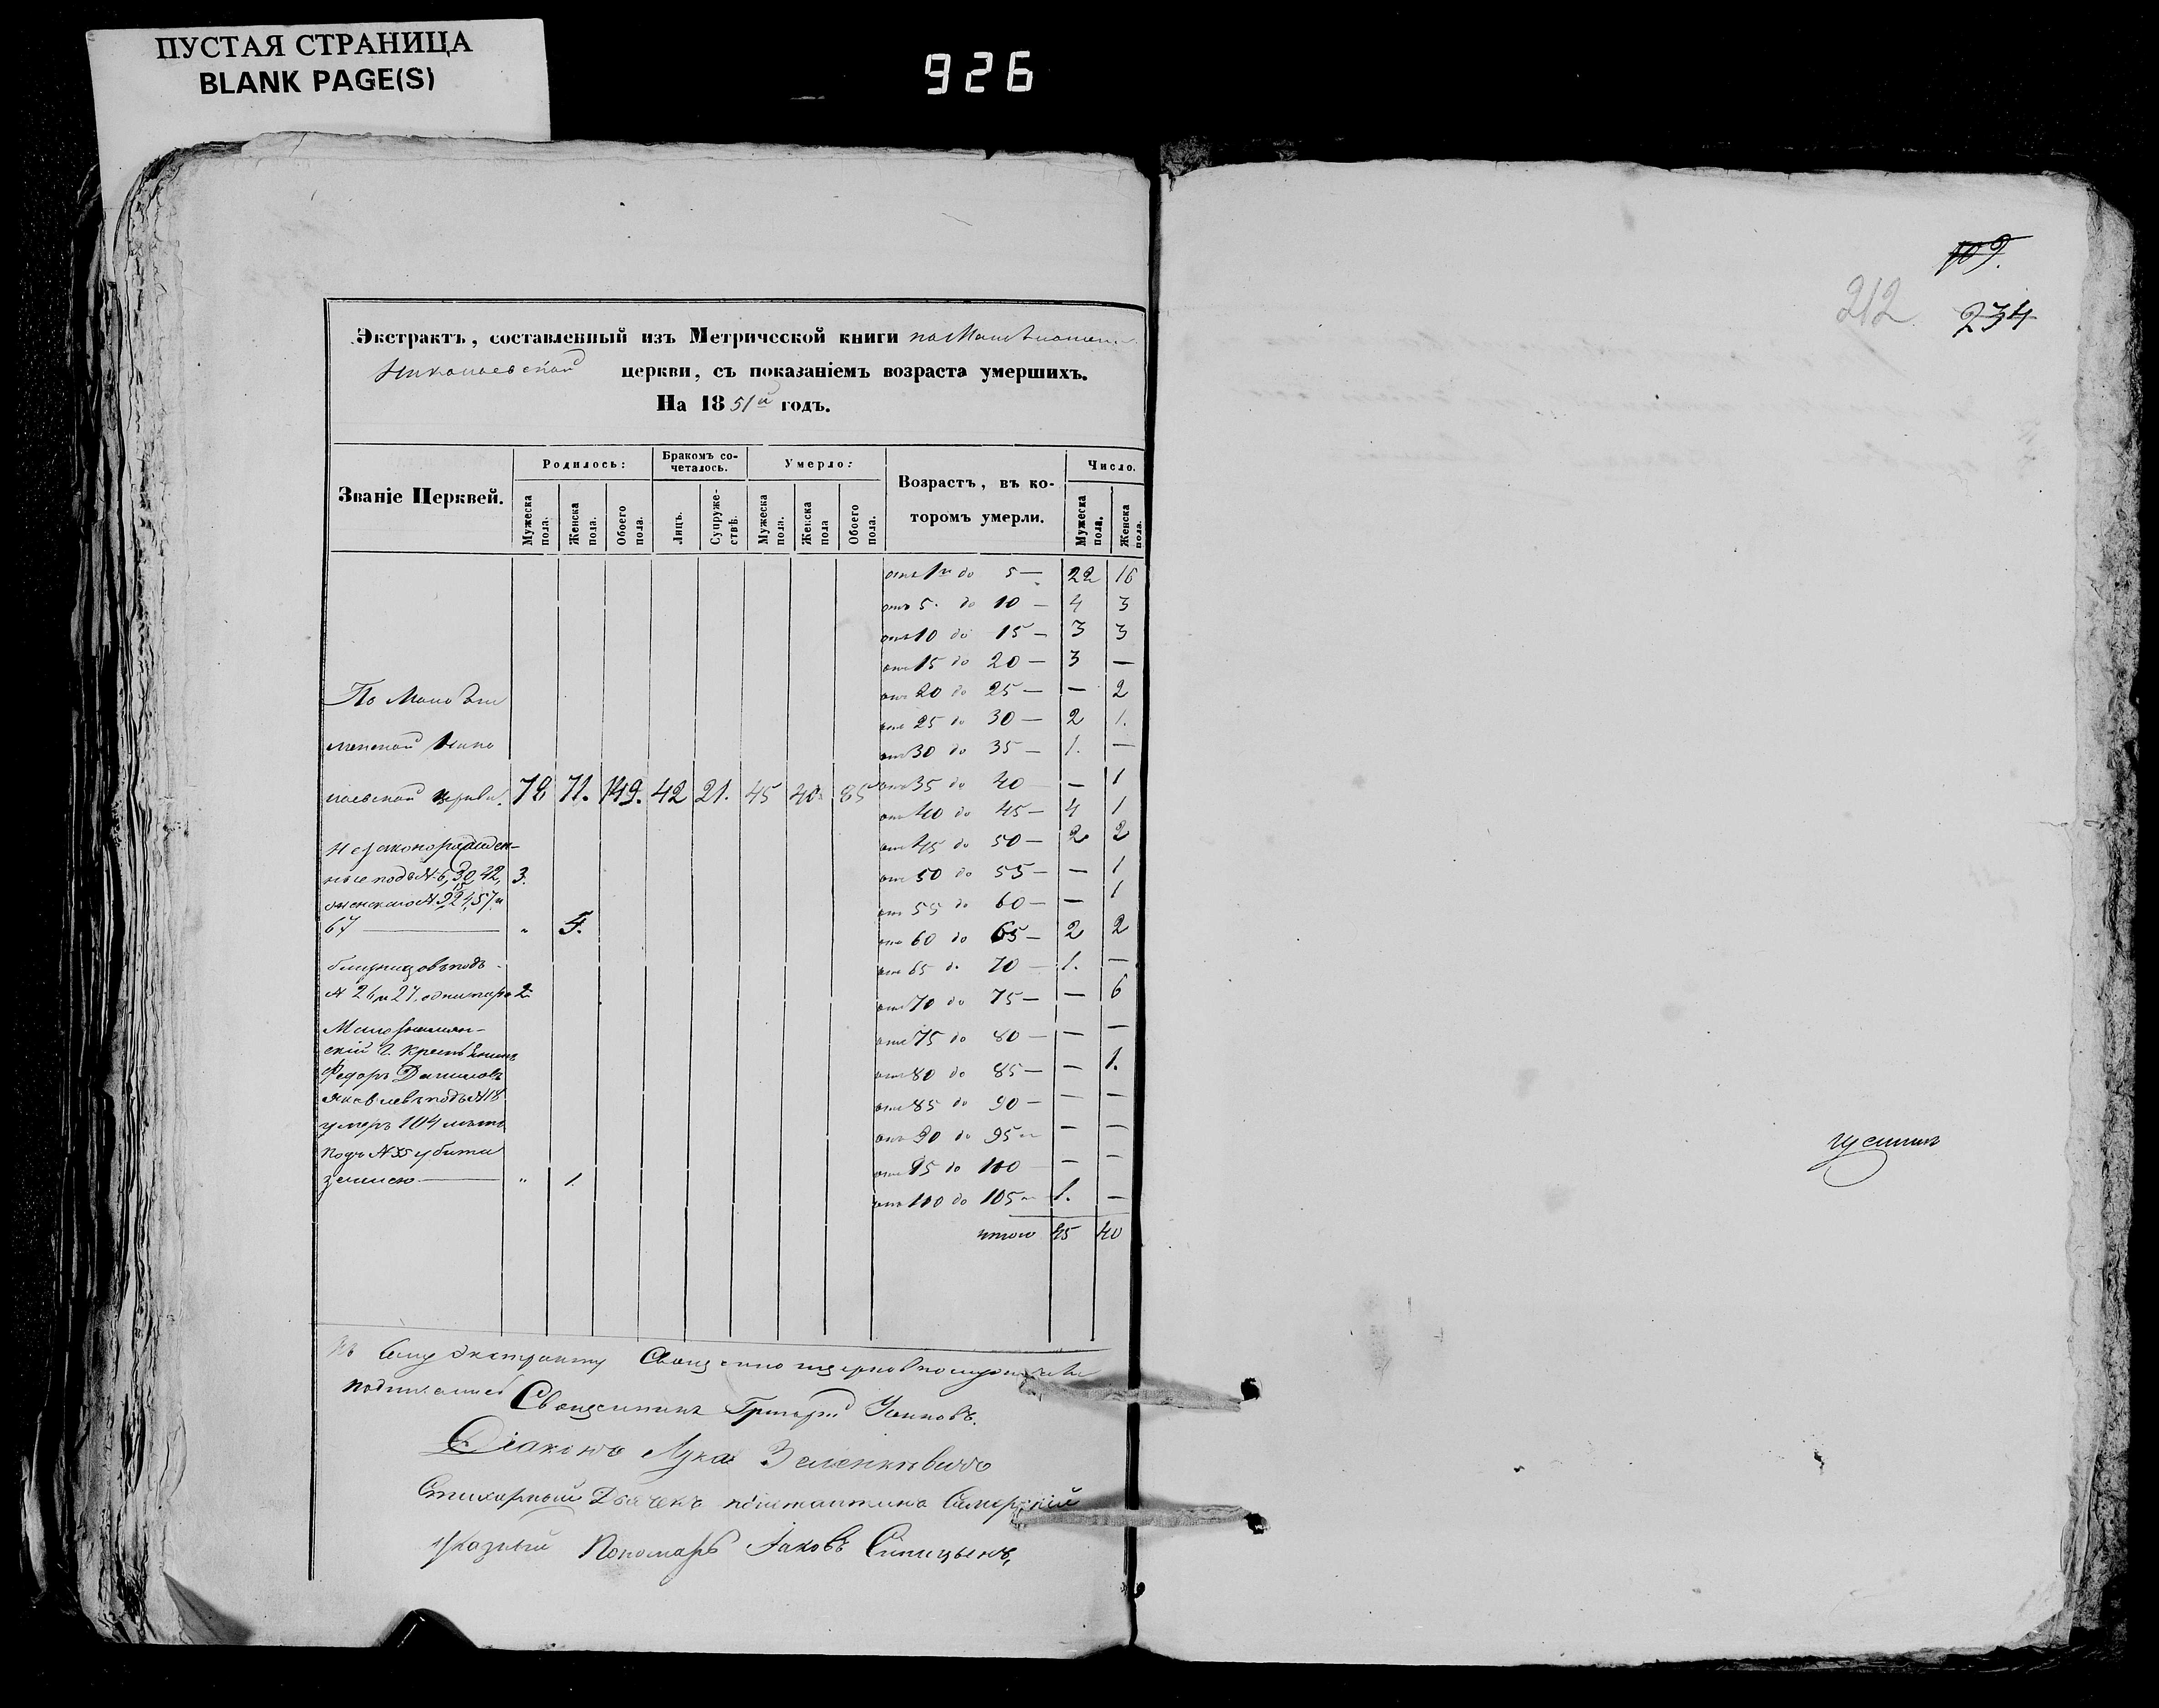 ПУСТАЯ СТРАНИЦА
BLANK PAGE(S)
926
109.
212
234
Экстрактъ, составленный изъ Метрической книги по
Николаевской церкви, съ показаніемъ возраста умершихъ.
На 1851й годъ.
Званіе Церквей.
Родилось:
Бракомъ со-
четалось.
Умерло:
Возрастъ, въ ко-
торомъ умерли.
Число.
Мужеска пола.
Женска пола.
Обоего пола.
Лицъ.
Супруже-
ствъ.
Мужеска пола.
Женска пола
Обоего пола.
Мужеска пола.
Женска пола.
отъ 1го до 5 — 22 16
отъ 5. до 10 — 4 3
отъ 10 до 15 — 3 3
отъ 15 до 20 — 3 —
отъ 20 до 25 — — 2
отъ 25 до 30 — 2 1.
отъ 30 до 35 — 1. —
отъ 35 до 40 — 1
отъ 40 до 45 — 4 1
отъ 45 до 50 — 2 2
отъ 50 до 55 — — 1
отъ 55 до 60 — — 1
отъ 60 до 65 — 2 2
отъ 65 до 70 — 1. —
отъ 70 до 75 — — 6
отъ 75 до 80 — — —
отъ 80 до 85 — — 1.
отъ 85 до 90 — — —
отъ 90 до 95 — — —
отъ 95 до 100 — —
отъ 100 до 105 — 1. —
итого 45 40
По
Нико
лаевской церкви. 78 71. 149. 42 21. 45 40 85
Незаконорожден-
ные подъ № 6, 30, 42, 3.
женскаго №
67 — „
близнецовъ подъ
№ 26 и 27. одна пара 2
скій Г. Крестьянинъ
Федоръ Даниловъ
Яковлевъ подъ № 18
умеръ 104 лѣтъ
Подъ № 35 убита
землею — „ 1.
Къ сему экстракту Священно и церковнослужители
подписались
Священникъ Григорій
Діаконъ Лука Зеленкевичъ
Стихарный Дьячекъ Константинъ
Указный Пономарь Іаковъ Синицынъ,